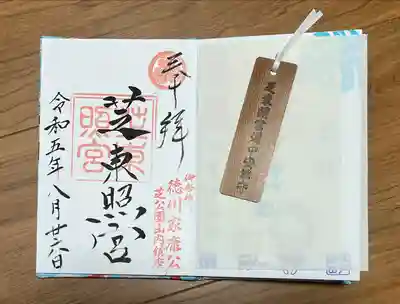 奉拝
芝東照宮
芝東照宮
御祭神
徳川家康公
芝公園山内鎮座
令和五年八月廿六日